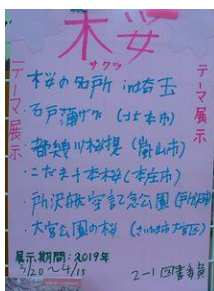 桜
サクラ
テーマ展示
テーマ展示
桜の名所 in埼玉
・石戸蒲ザクラ(北本市)
・都幾川桜堤(嵐山市)
・こだま千本桜(本庄市)
・所沢航空記念公園(所沢市)
・大宮公園の桜(さいたま市大宮区)
展示期間:2019年
3/20～4/15
2-1 図書委員